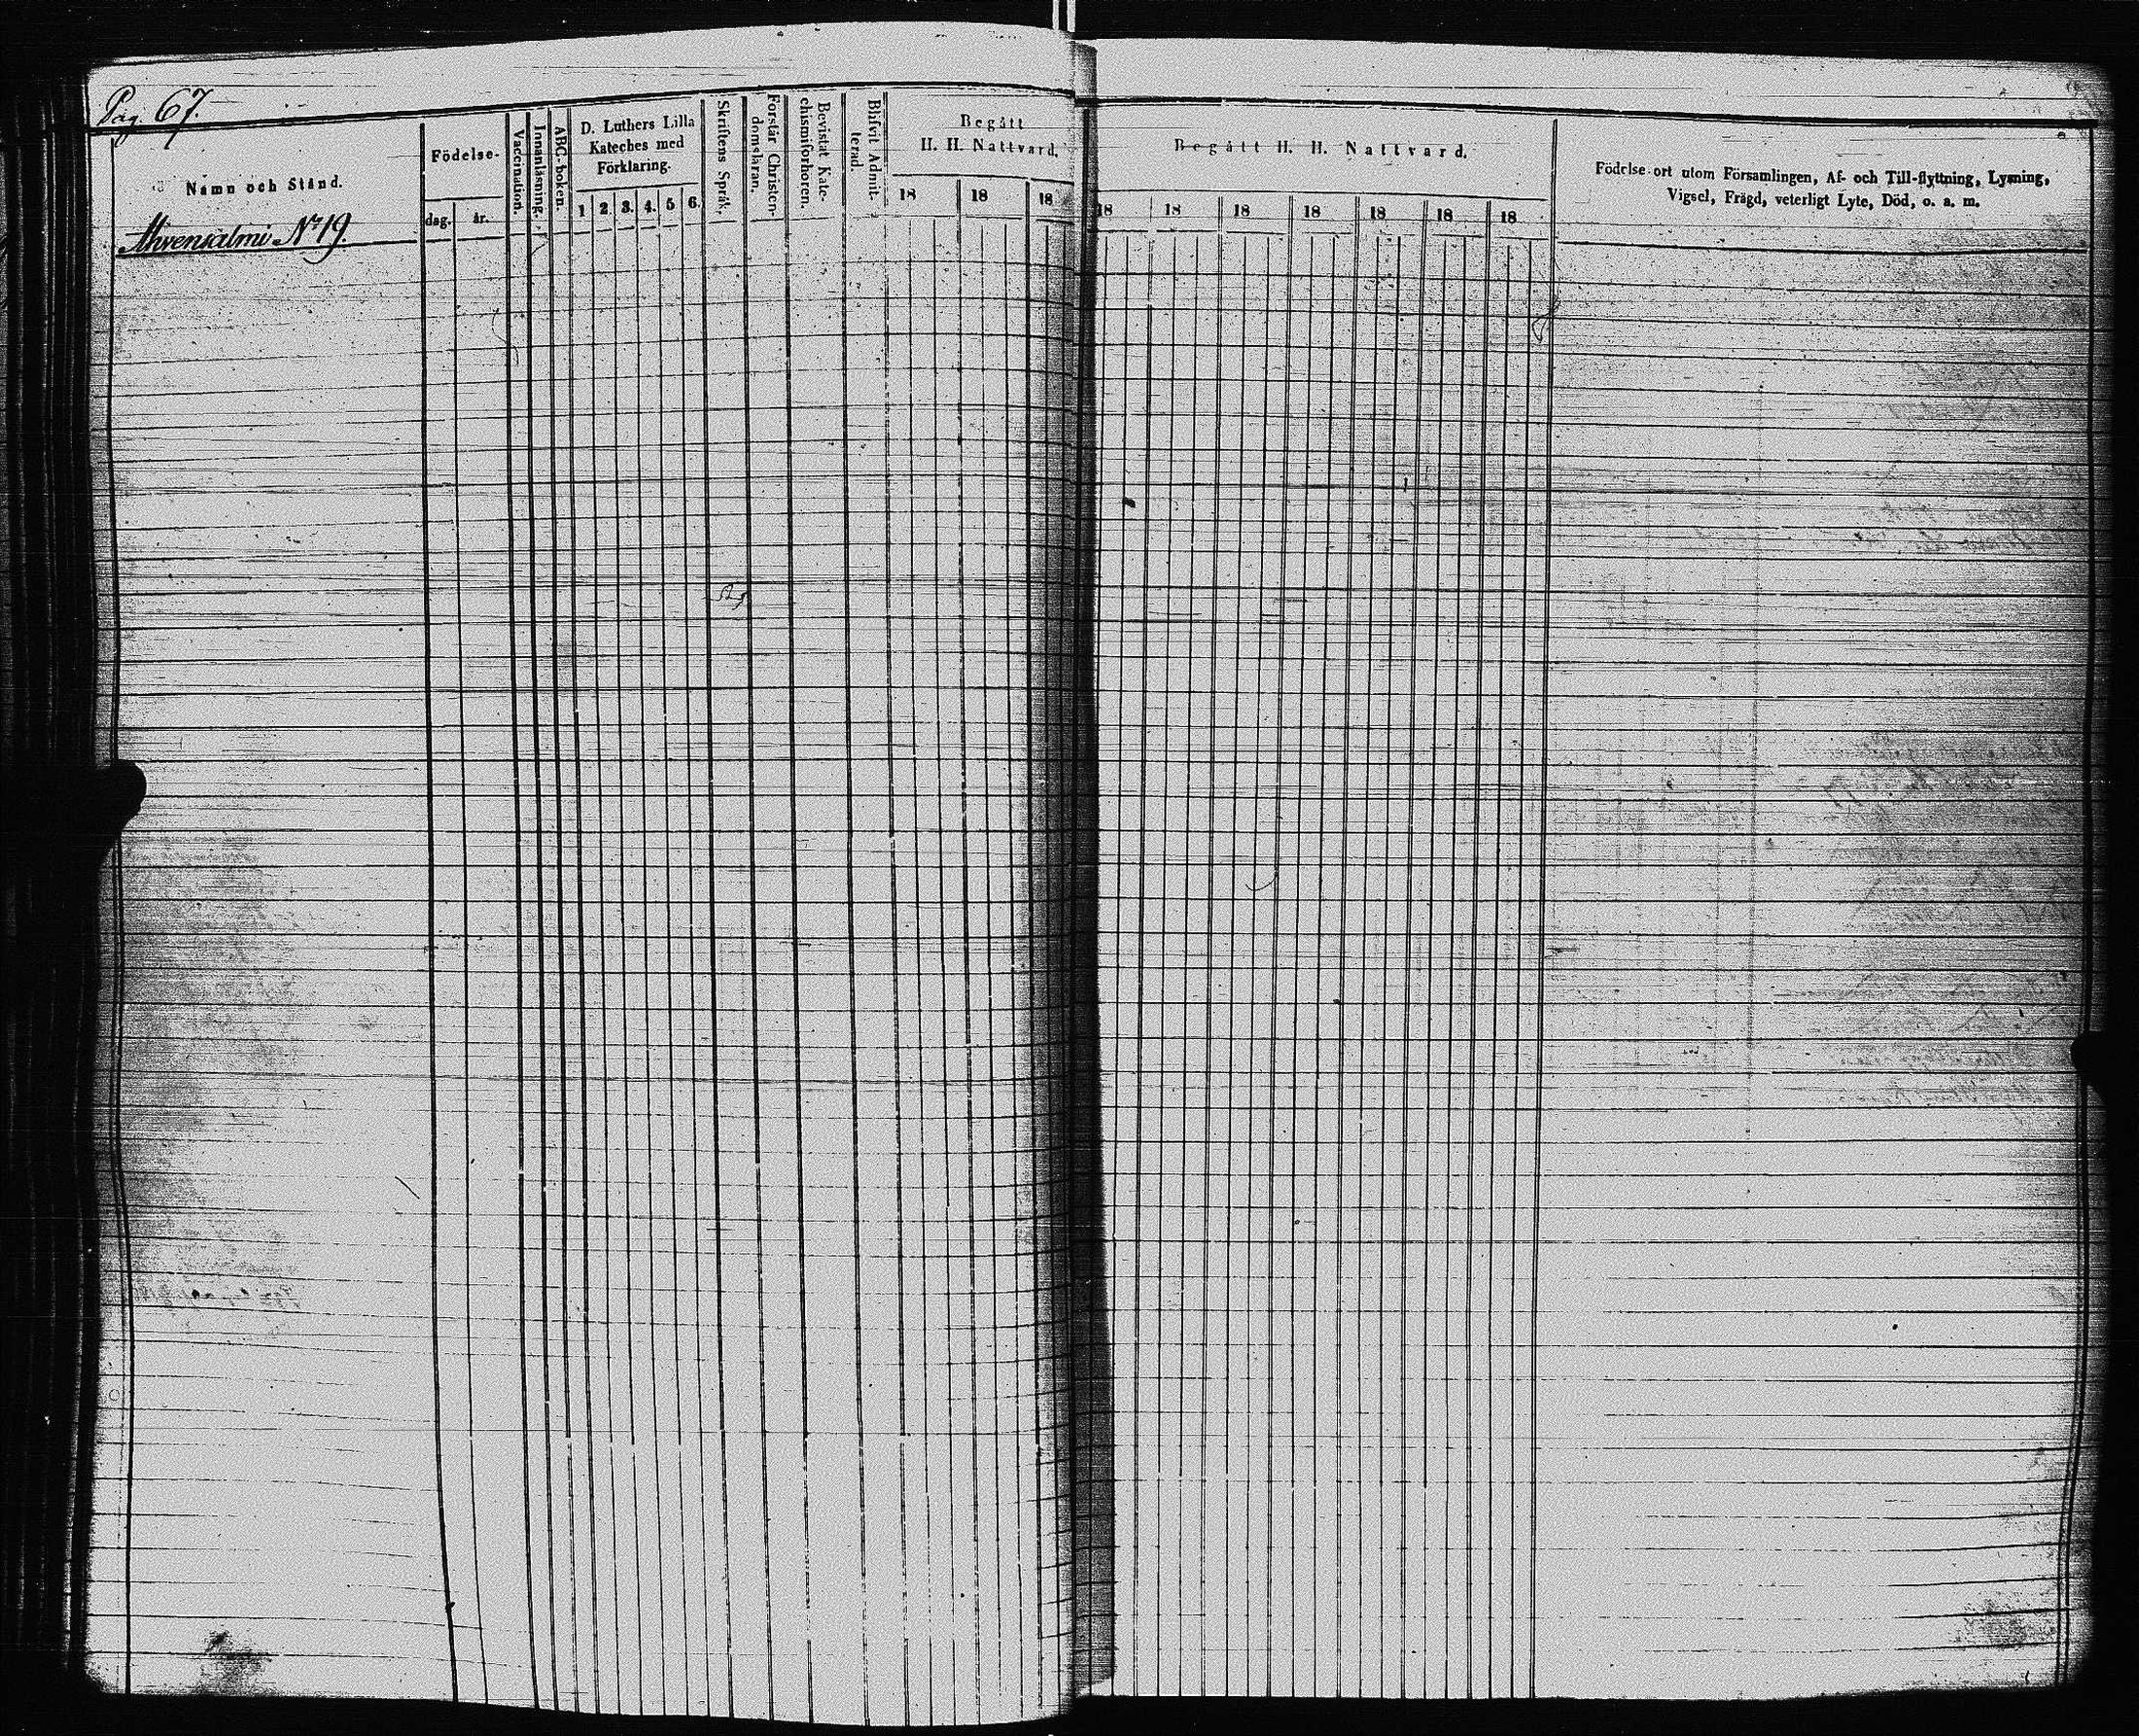 Pag. 67.
Namn och Stånd.
Ahvensalmi No 19.
Födelse-
dag. år.
Vaccination.
Innanläsning.
ABC-boken.
D. Luthers Lilla
Kateches med
Förklaring.
1 2. 3. 4. 5 6.
Skriftens Språk.
Förstår Christen-
domsläran.
Bevistat Kate-
chismiförhören.
Blifvit Admit-
terad.
Begått
H. H. Nattvard.
18 18 18
Begått H. H. Nattvard.
18 18 18 18 18 18 18
Födelse-ort utom Församlingen, Af- och Till-flyttning, Lysning,
Vigsel, Frägd, veterligt Lyte, Död, o. a. m.